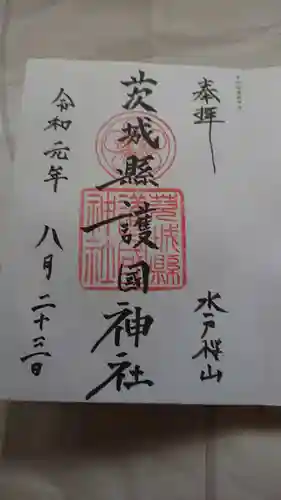 奉拝
水戸桜山
茨城縣護國神社
茨城縣
護國
神社
令和元年
八月二十三日